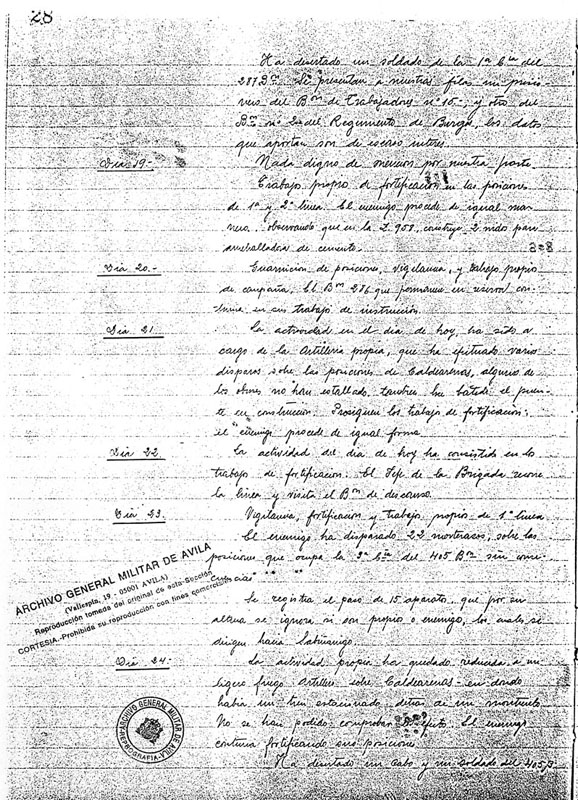 28
Ha desertado un soldado de la 1ª Cia del
287 Bon. Se presentan a nuestras filas un prisio-
nero del Bon de Trabajadores nº 15-, y otro del
Bon nº del Regimiento de Burgos, los datos
que aportan son de escaso interes.
Dia 19.- Nada digno de mencion por nuestra parte
Trabajo propio de fortificacion en las posiciones
de 1ª y 2ª linea. El enemigo procede de igual ma-
nera, observando que en la 958, construye 2 nidos para
ametralladoras de cemento.
Dia 20.- Guarnicion de posiciones, vigilancia, y trabajo propio
de campaña. El Bon 286 que permanece en reserva con-
tinua en sus trabajo de instruccion.
Dia 21 La actividad en el dia de hoy, ha sido a
cargo de la Artilleria propia, que ha efectuado varios
disparos sobre las posiciones de Caldearenas, alguno de
los obuses no han estallado, tambien ha batido el puen-
te en construccion. Prosiguen los trabajo de fortificacion;
el enemigo procede de igual forma.
Dia 22 La actividad del dia de hoy ha consistido en los
trabajo de fortificacion. El Jefe de la Brigada recorre
la linea y visita el Bon de descanso.
Dia 23. Vigilancia, fortificacion y trabajos propios de 1ª linea
El enemigo ha disparado 22 morterazos, sobre las
posiciones que ocupa la Cia del 405 Bon sin conse-
cuencias
Se registra el paso de 15 aparatos, que por su
altura se ignora si son propio o enemigo, los cuales se
dirigen hacia Sabiñanigo.
Dia 24.- La actividad propia ha quedado reducida a un
ligero fuego Artillero sobre Caldearenas - en donde
habia un tren estacionado, detras de un montículo
No se han podido comprobar El enemigo
continua fortificando sus posiciones
Ha desertado un Cabo y un soldado del 405 B
ARCHIVO GENERAL MILITAR DE AVILA
(Vallespín, 19 - 05001 AVILA)
Reproducción tomada del original de esta Sección
CORTESIA.-Prohibida su reproducción con fines comerciales
ARCHIVO GENERAL MILITAR DE AVILA
REPROGRAFIA